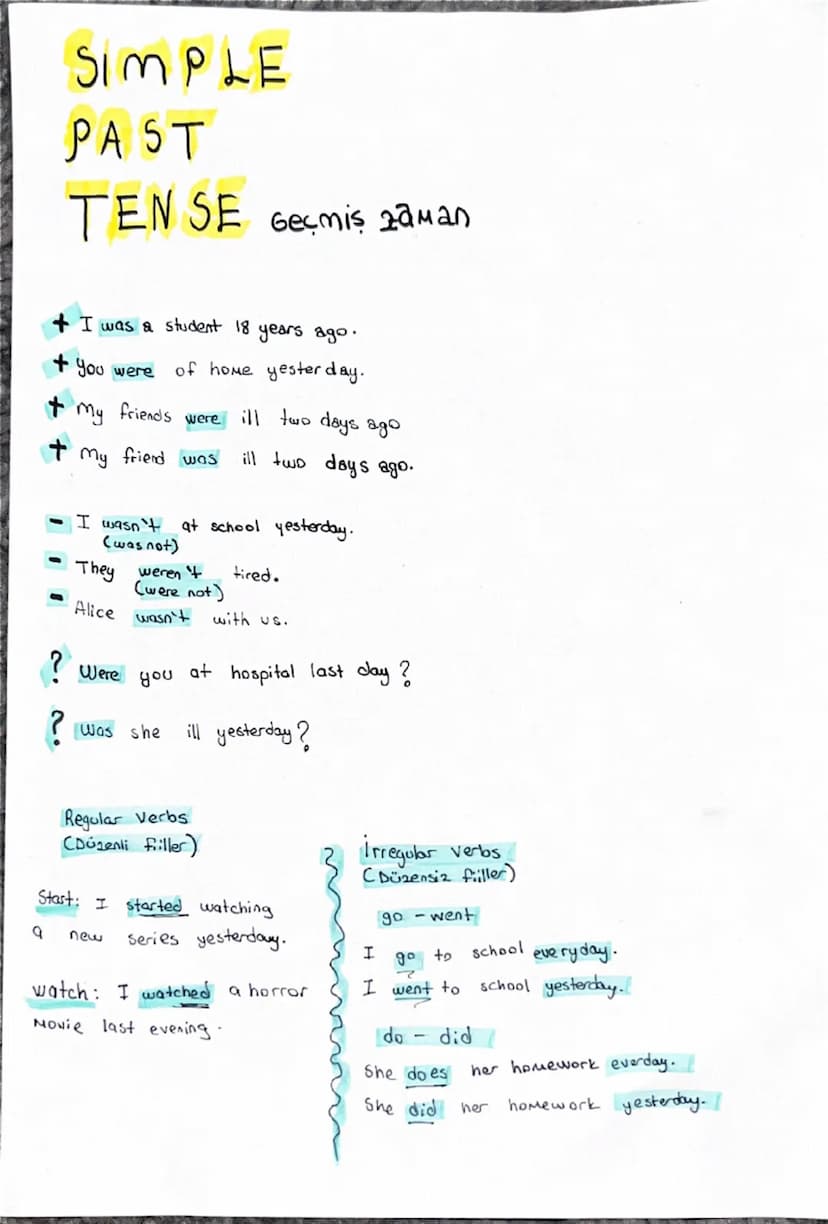 SIMPLE
PAST
TENSE Geçmiş zaman
+ I was a student 18 years ago.
+ you were of home yesterday.
+ My friends were ill two days ago
+ My friend was ill two days ago.
- I wasn't at school yesterday.
(was not)
- They weren't tired.
(were not)
- Alice wasn't with us.
? Were you at hospital last day?
? Was she ill yesterday?
Regular verbs
(Düzenli fiiller)
Start: I started watching
a new series yesterday.
Watch: I watched a horror
Movie last evening.
İrregular verbs
(Düzensiz fiiller)
go - went
I go to school everyday.
I went to school yesterday.
do - did
She does her homework everday.
She did her homework yesterday.